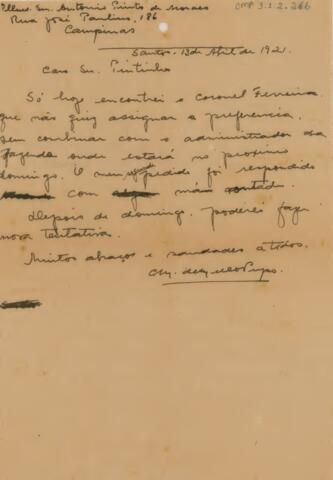 Illmo. Sr. Antonio Pinto de Moraes
CMP 3.1.2.266
Rua José Paulino, 186
Campinas
Santos, 13 de Abril de 192
Caro Sr. Pintinho
Só hoje encontrei o Coronel Ferreira
que não quiz assignar a preferencia,
sem combinar com o administrador da
fazenda onde estará no proximo
domingo. O meu pedido foi respondido
com má
Depois de domingo, poderei fazer
nova tentativa.
Muitos abraços e saudades a todos.